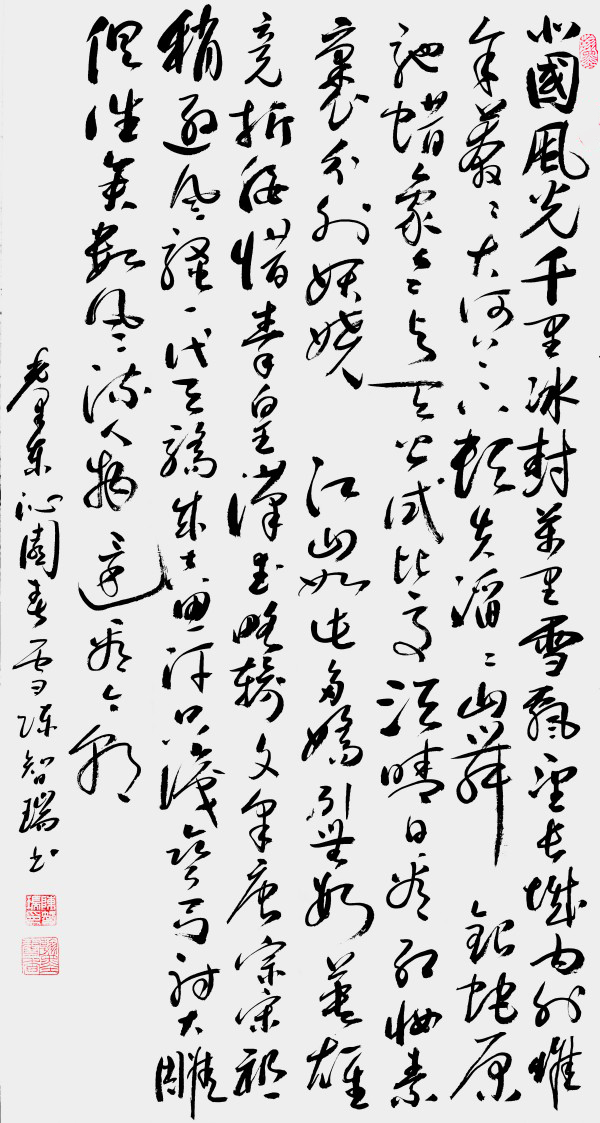 北國風光千里冰封萬里雪飄望長城內外惟
余莽莽大河上下頓失滔滔山舞銀蛇原
馳蜡象欲与天公試比高須晴日看紅妝素
裹分外妖嬈 江山如此多嬌引無數英雄
竞折腰惜秦皇漢武略輸文采唐宗宋祖
稍遜風騷一代天驕成吉思汗只識彎弓射大雕
俱往矣數風流人物還看今朝
毛澤東沁園春雪陳智瑞书